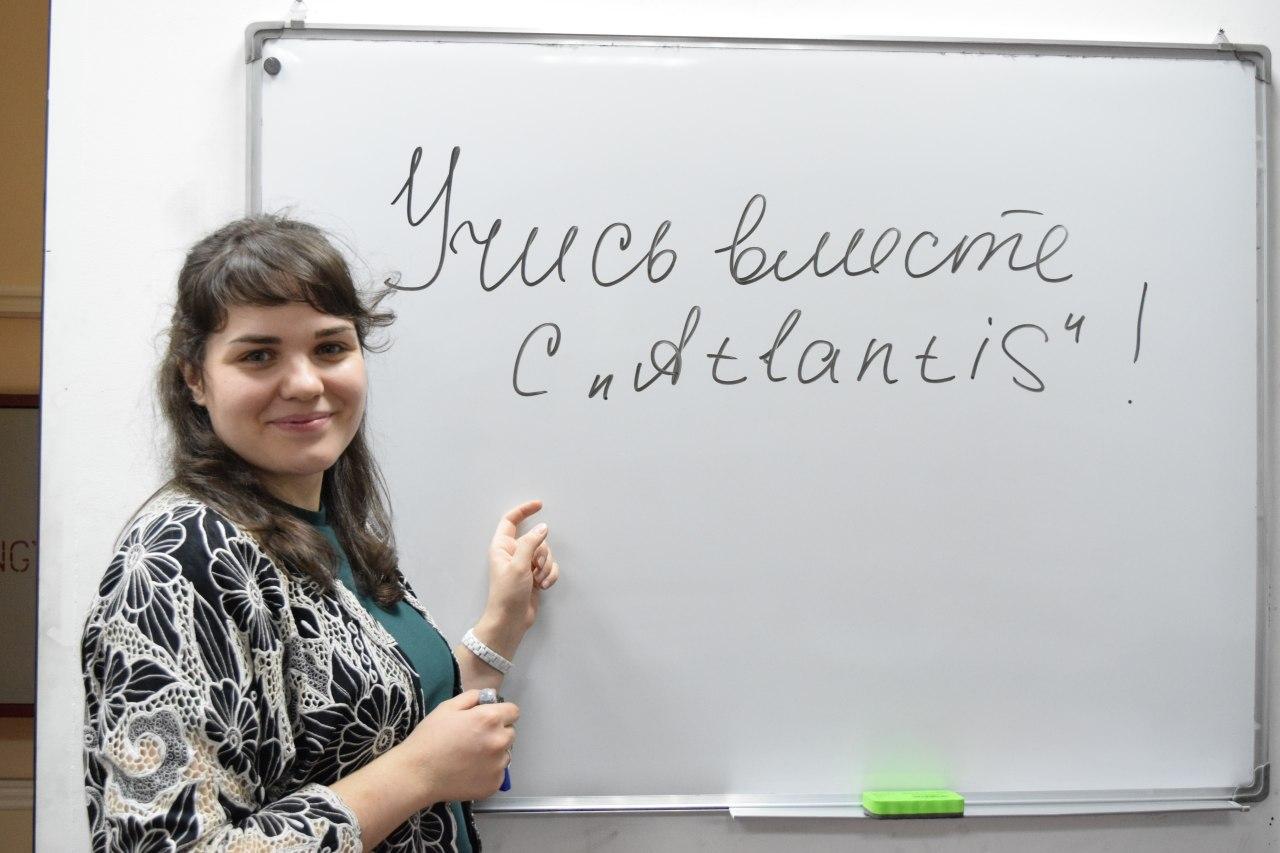 Учись вместе
с „Atlantis“ !
NG